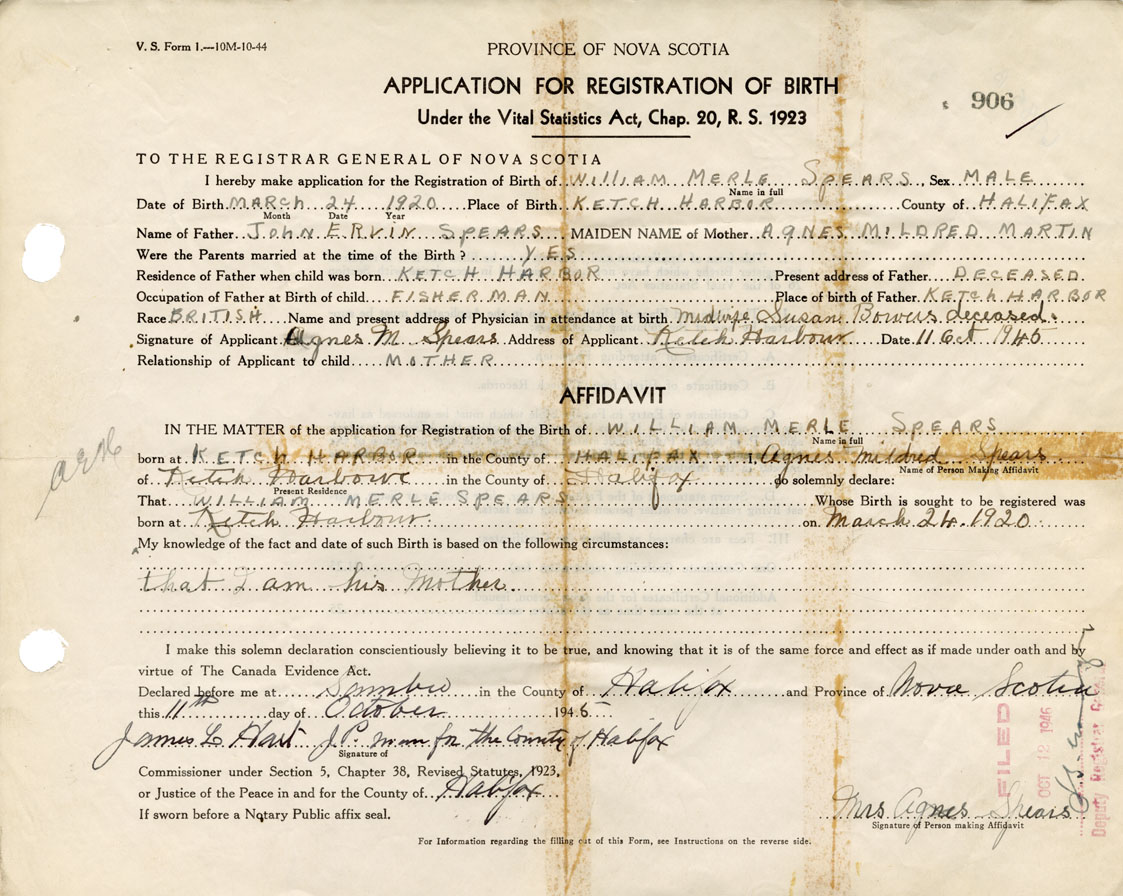 V. S. Form 1.—10M-10-44
PROVINCE OF NOVA SCOTIA
APPLICATION FOR REGISTRATION OF BIRTH
906
Under the Vital Statistics Act, Chap. 20, R. S. 1923
TO THE REGISTRAR GENERAL OF NOVA SCOTIA
I hereby make application for the Registration of Birth of WILLIAM MERLE SPEARS, Sex MALE
Name in full
Date of Birth MARCH 24 1920 Place of Birth KETCH HARBOR County of HALIFAX
Month Date Year
Name of Father JOHN ERVIN SPEARS MAIDEN NAME of Mother AGNES MILDRED MARTIN
Were the Parents married at the time of the Birth? YES
Residence of Father when child was born KETCH HARBOR Present address of Father DECEASED.
Occupation of Father at Birth of child FISHERMAN Place of birth of Father KETCH HARBOR
Race BRITISH Name and present address of Physician in attendance at birth Midwife Susan Bowers deceased.
Signature of Applicant Agnes M Spears Address of Applicant Ketch Harbour Date 11 Oct 1945
Relationship of Applicant to child MOTHER
AFFIDAVIT
IN THE MATTER of the application for Registration of the Birth of WILLIAM MERLE SPEARS
Name in full
born at KETCH HARBOR in the County of HALIFAX I, Agnes Mildred Spears
Name of Person Making Affidavit
of Ketch Harbour in the County of Halifax do solemnly declare:
Present Residence
That WILLIAM MERLE SPEARS Whose Birth is sought to be registered was
born at Ketch Harbour on March 24. 1920
My knowledge of the fact and date of such Birth is based on the following circumstances:
that I am his Mother.
I make this solemn declaration conscientiously believing it to be true, and knowing that it is of the same force and effect as if made under oath and by
virtue of The Canada Evidence Act.
Declared before me at Sambro in the County of Halifax and Province of Nova Scotia
this 11th day of October 1945
James L Hart J.P. in and for the County of Halifax
Signature of
Commissioner under Section 5, Chapter 38, Revised Statutes, 1923,
or Justice of the Peace in and for the County of Halifax
If sworn before a Notary Public affix seal.
Mrs Agnes Spears
Signature of Person making Affidavit
For Information regarding the filling out of this Form, see Instructions on the reverse side.
FILED
OCT 12 1946
Deputy Registrar